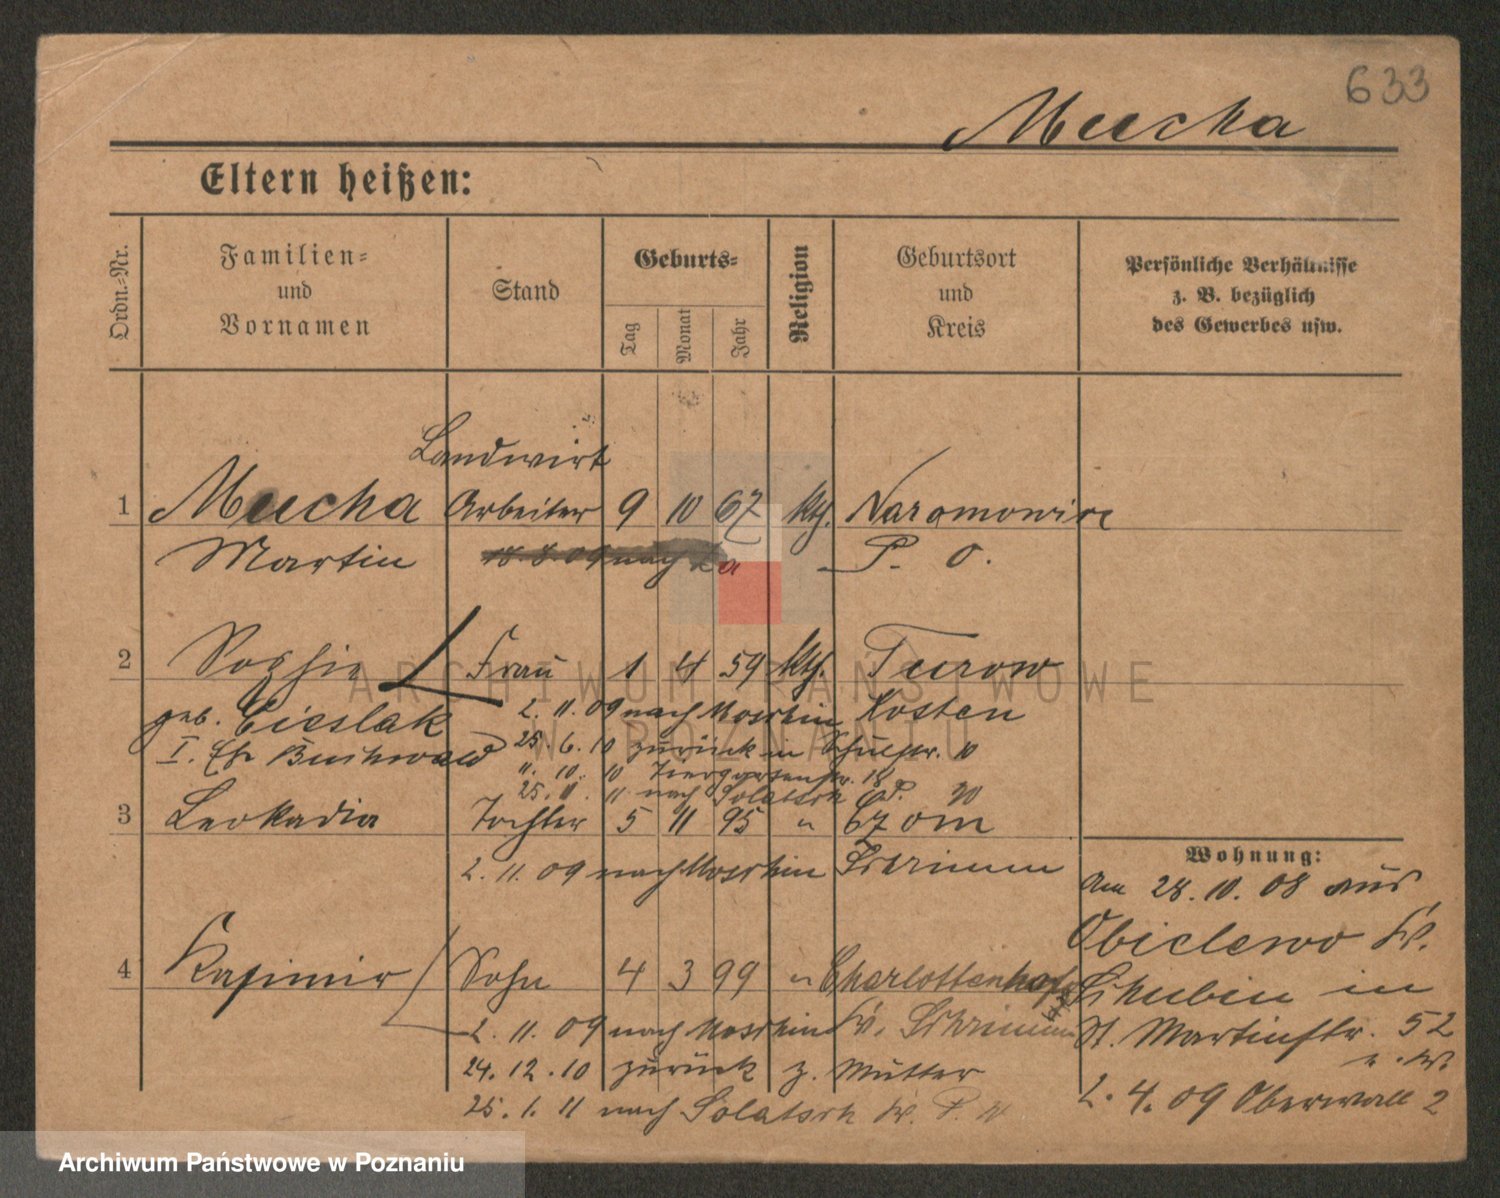 633
Mucha
Eltern heißen:
Ordn.-Nr.
Familien-
und
Vornamen
Stand
Geburts-
Tag
Monat
Jahr
Religion
Geburtsort
und
Kreis
Persönliche Verhältnisse
z. B. bezüglich
des Gewerbes usw.
Landwirt
1 Mucha Arbeiter 9 10 67 kth. Naramowice
Martin 18. 8. 09 nach P. O.
2 Sophie Frau 1 4 59 kth. Turow
geb. Cieslak 2. 11. 09 nach Moschin Kosten
I. Ehe Buchwald 25. 6. 10 zurück in Schulstr. 10
11. 10. 10 Tiergartenstr. 18
25. 11. 11 nach Solatsch P. W
3 Leokadia Tochter 5 11 95 "
2. 11. 09 nach Moschin Schrimm
4 Kasimir Sohn 4 3 99 " Charlottenhof
2. 11. 09 nach Moschin Kr. Schrimm
24. 12. 10 zurück z. Mutter
25. 1. 11 nach Solatsch Kr. P. W
Wohnung:
Am 28. 10. 08 aus
Obielewo Kr.
Schubin in
St. Martinstr. 52
2. 4. 09 Oberwall 2
ARCHIWUM PAŃSTWOWE
W POZNANIU
Archiwum Państwowe w Poznaniu